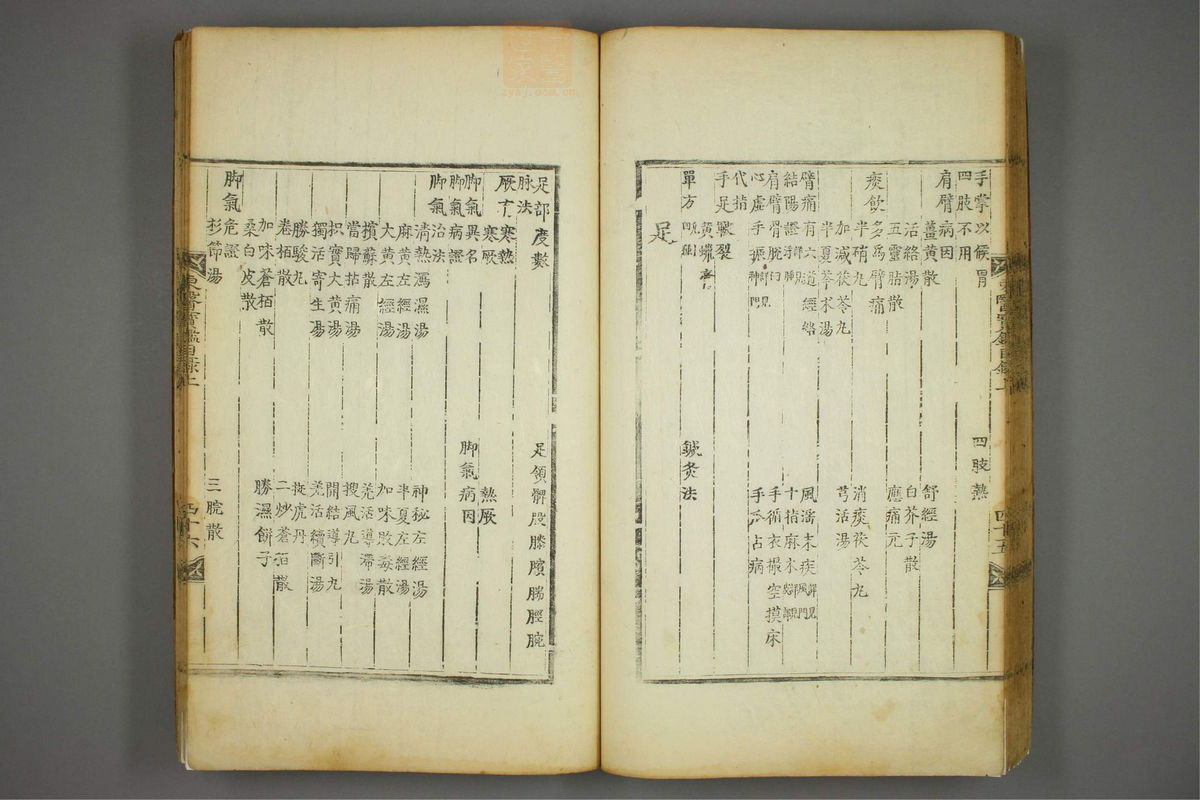 手掌以候胃 四肢熱
四肢不用
肩臂病因
薑黃散 舒經湯
活絡湯 白芥子散
五靈脂散 應痛元
痰飲多爲臂痛
半硝丸 消痰茯苓丸
加減茯苓丸 芎活湯
半夏苓朮湯
臂痛有六道經絡 風淫末疾
結陽證 十指麻木
肩臂骨脫臼 手循衣撮空摸床
心虛手振 手爪占病
代指
手足皸裂
黃蠟膏
單方 鍼灸法
足
東醫寶鑑目錄上 四十五
足部度數 足領髀股膝臏腨脛腕
脉法
厥有寒熱
寒厥 熱厥
脚氣異名 脚氣病因
脚氣病證
脚氣治法
淸熱瀉濕湯 神秘左經湯
麻黃左經湯 半夏左經湯
大黃左經湯 加味敗毒散
檳蘇散 羌活導滯湯
當歸拈痛湯 搜風丸
枳實大黃湯 開結導引丸
獨活寄生湯 羌活續斷湯
勝駿丸 捉虎丹
卷栢散 二炒蒼栢散
加味蒼栢散 勝濕餅子
桑白皮散
脚氣危證
杉節湯 三脘散
東醫寶鑑目錄上 四十六